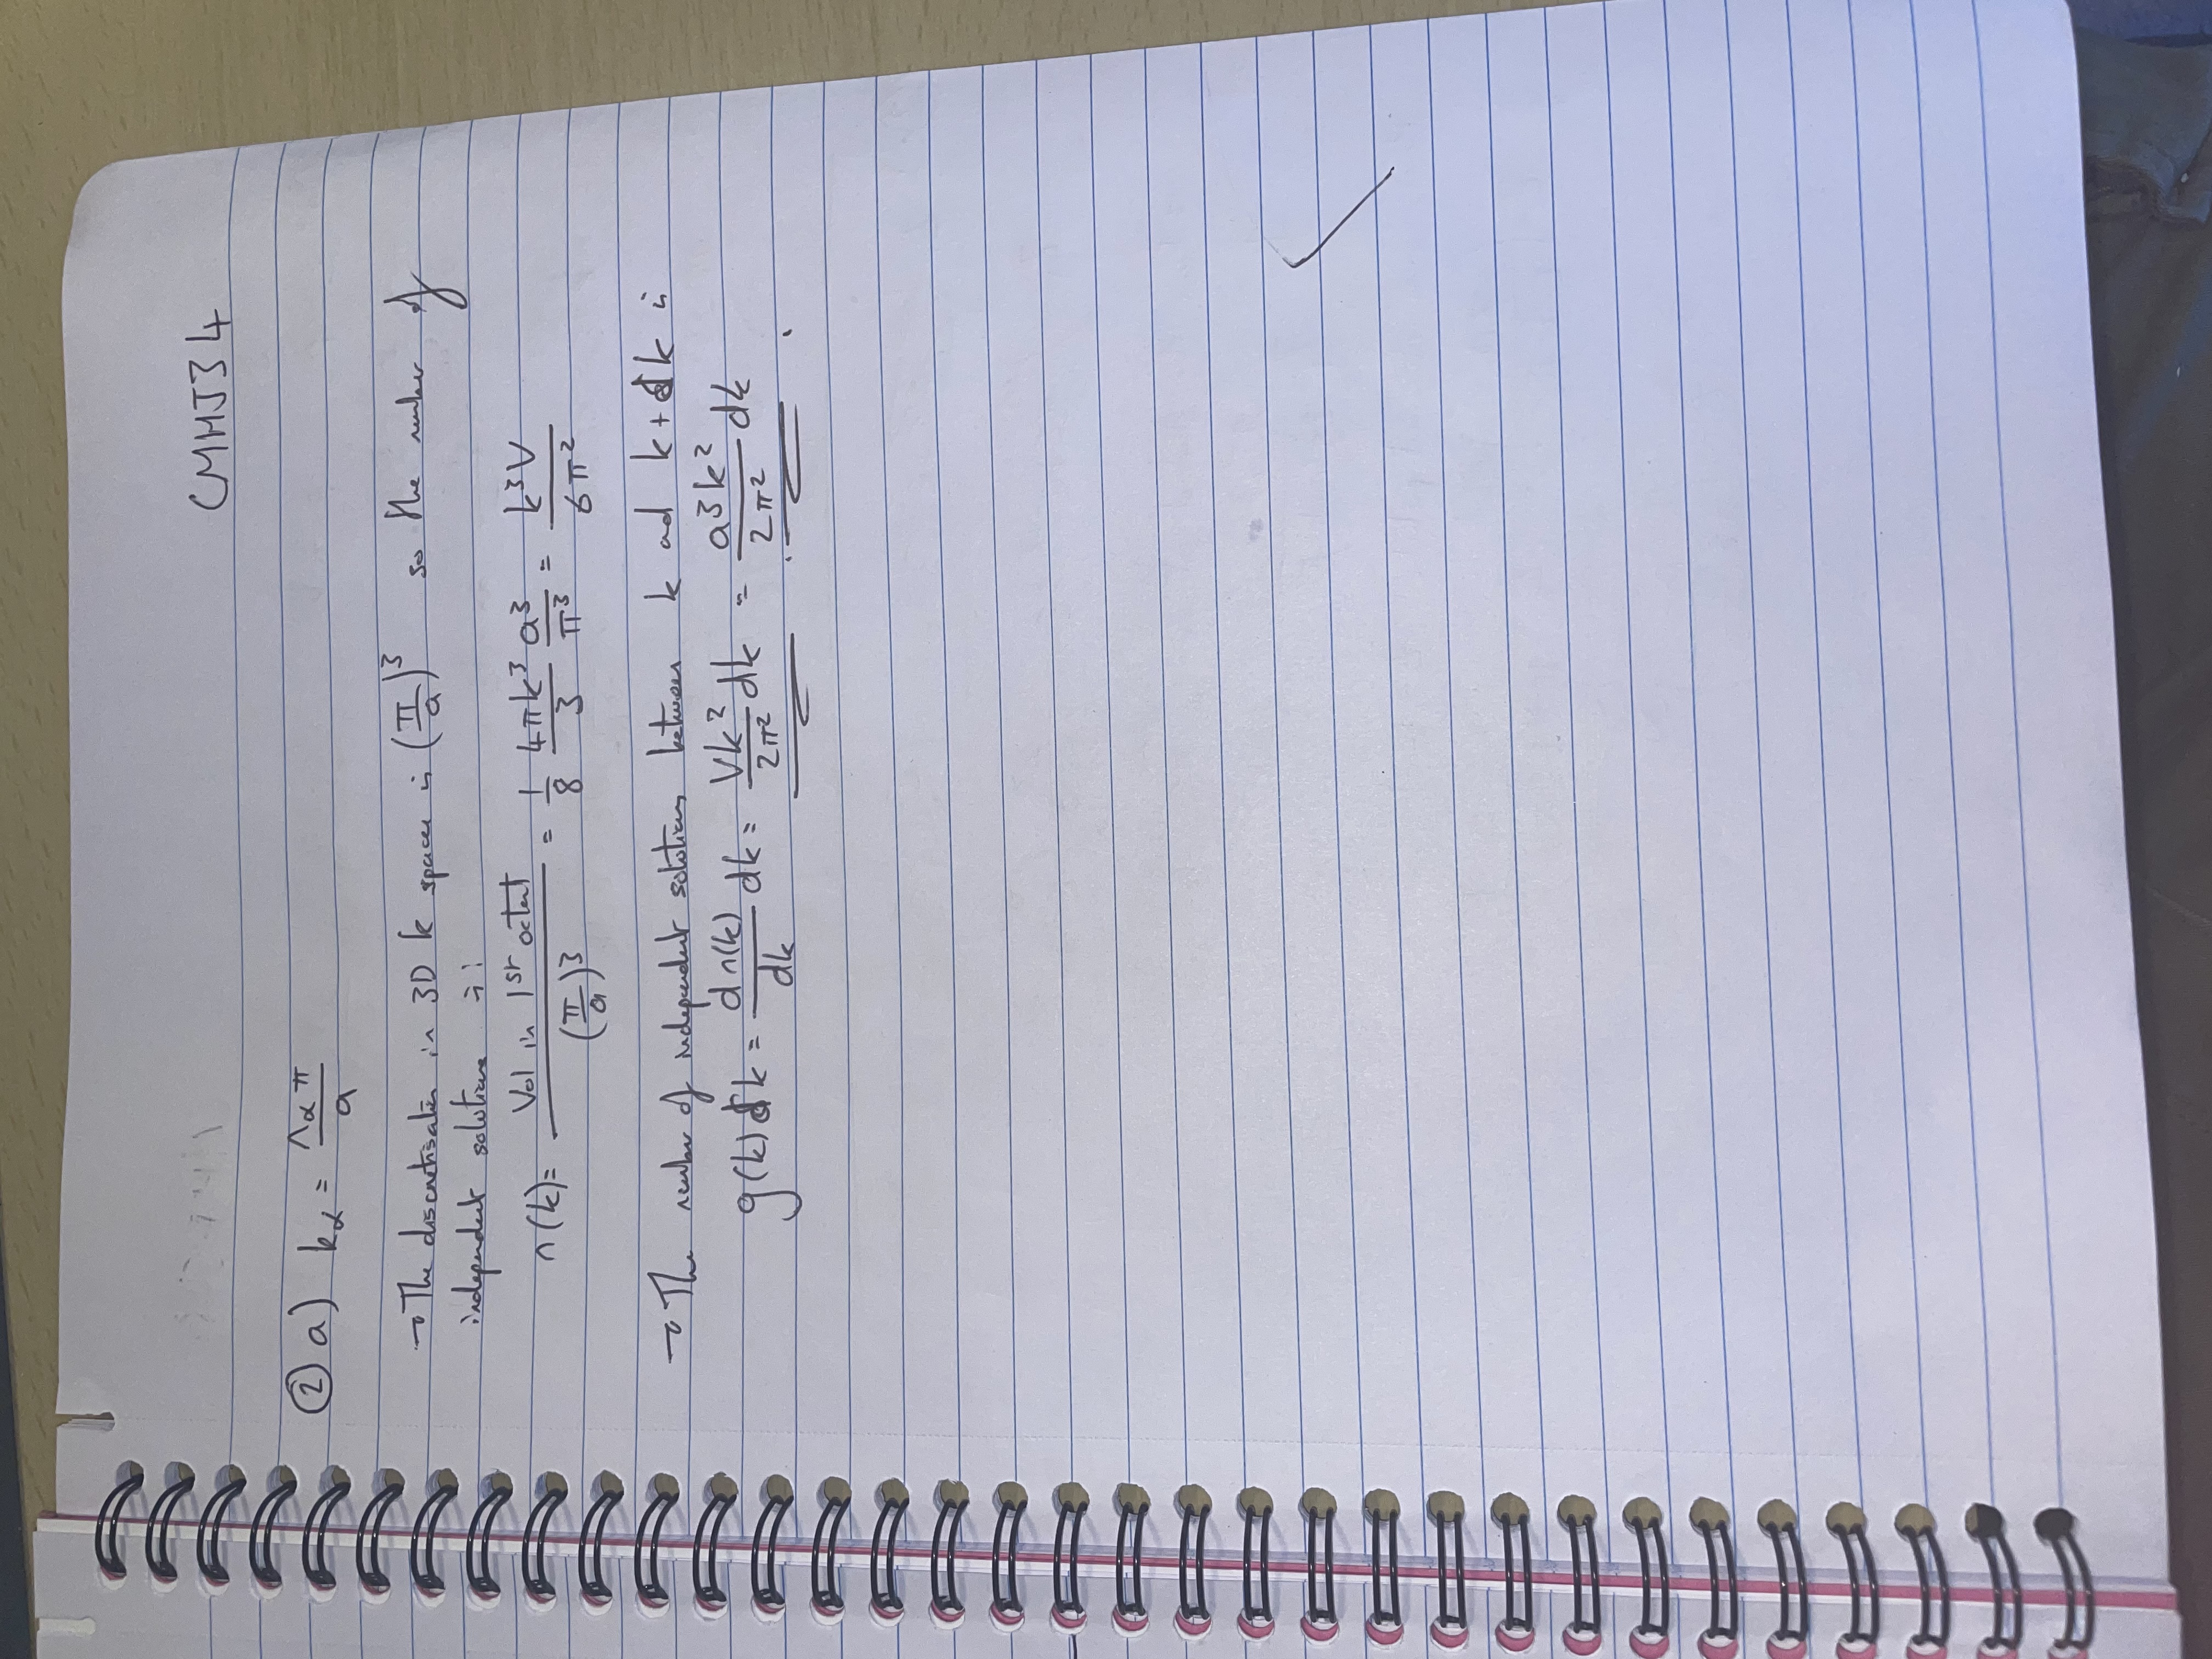 CMHJ34
② a) kα = nαπ/a
→ The discretisation in 3D k space is (π/a)³ so the number of
independent solutions is:
n(k) = Vol in 1st octant/(π/a)³ = 1/8 4πk³/3 a³/π³ = k³V/6π²
→ The number of independent solutions between k and k+dk is
g(k)dk = dn(k)/dk dk = Vk²/2π² dk = a³k²/2π² dk.